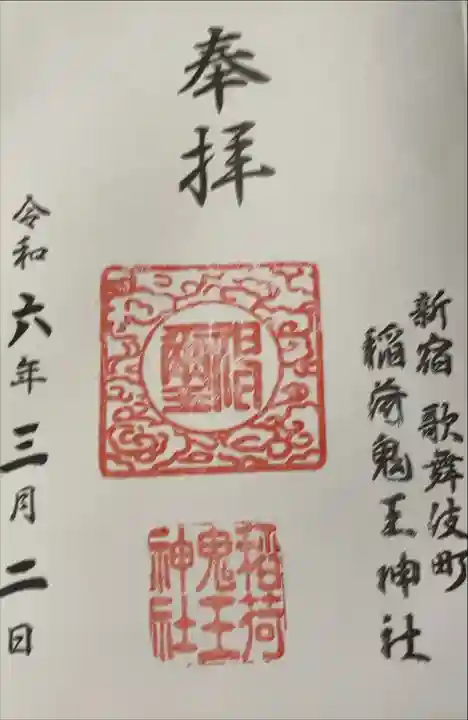 奉拝
新宿 歌舞伎町
稲荷鬼王神社
稲荷
鬼王
神社
令和六年三月二日